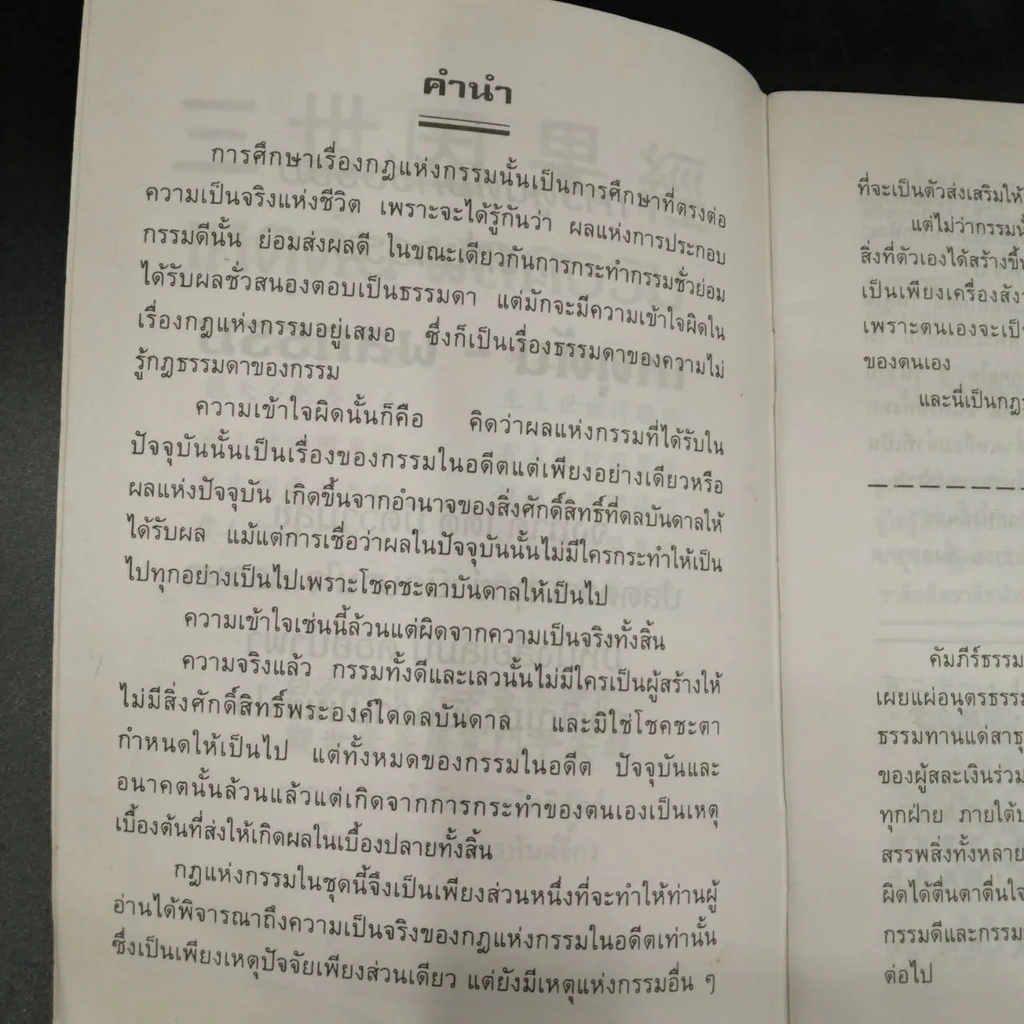 คำนำ
การศึกษาเรื่องกฎแห่งกรรมนั้นเป็นการศึกษาที่ตรงต่อ
ความเป็นจริงแห่งชีวิต เพราะจะได้รู้กันว่า ผลแห่งการประกอบ
กรรมดีนั้น ย่อมส่งผลดี ในขณะเดียวกันการกระทำกรรมชั่วย่อม
ได้รับผลชั่วสนองตอบเป็นธรรมดา แต่มักจะมีความเข้าใจผิดใน
เรื่องกฎแห่งกรรมอยู่เสมอ ซึ่งก็เป็นเรื่องธรรมดาของความไม่
รู้กฎธรรมดาของกรรม
ความเข้าใจผิดนั้นก็คือ คิดว่าผลแห่งกรรมที่ได้รับใน
ปัจจุบันนั้นเป็นเรื่องของกรรมในอดีตแต่เพียงอย่างเดียวหรือ
ผลแห่งปัจจุบัน เกิดขึ้นจากอำนาจของสิ่งศักดิ์สิทธิ์ที่ดลบันดาลให้
ได้รับผล แม้แต่การเชื่อว่าผลในปัจจุบันนั้นไม่มีใครกระทำให้เป็น
ไปทุกอย่างเป็นไปเพราะโชคชะตาบันดาลให้เป็นไป
ความเข้าใจเช่นนี้ล้วนแต่ผิดจากความเป็นจริงทั้งสิ้น
ความจริงแล้ว กรรมทั้งดีและเลวนั้นไม่มีใครเป็นผู้สร้างให้
ไม่มีสิ่งศักดิ์สิทธิ์พระองค์ใดดลบันดาล และมิใช่โชคชะตา
กำหนดให้เป็นไป แต่ทั้งหมดของกรรมในอดีต ปัจจุบันและ
อนาคตนั้นล้วนแล้วแต่เกิดจากการกระทำของตนเองเป็นเหตุ
เบื้องต้นที่ส่งให้เกิดผลในเบื้องปลายทั้งสิ้น
กฎแห่งกรรมในชุดนี้จึงเป็นเพียงส่วนหนึ่งที่จะทำให้ท่านผู้
อ่านได้พิจารณาถึงความเป็นจริงของกฎแห่งกรรมในอดีตเท่านั้น
ซึ่งเป็นเพียงเหตุปัจจัยเพียงส่วนเดียว แต่ยังมีเหตุแห่งกรรมอื่น ๆ
ที่จะเป็นตัวส่งเสริมให้
แต่ไม่ว่ากรรมนั้
สิ่งที่ตัวเองได้สร้างขึ้น
เป็นเพียงเครื่องสังว
เพราะตนเองจะเป็น
ของตนเอง
และนี่เป็นกฎา
คัมภีร์ธรรม
เผยแผ่อนุตรธรรม
ธรรมทานแด่สาธุ
ของผู้สละเงินร่วม
ทุกฝ่าย ภายใต้บ
สรรพสิ่งทั้งหลาย
ผิดได้ตื่นตาตื่นใจ
กรรมดีและกรรม
ต่อไป